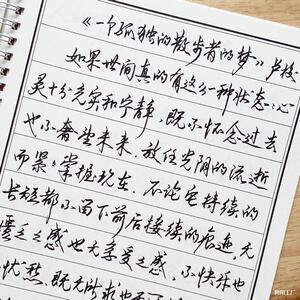 《一个孤独的散步者的梦》卢梭
如果世间真的有这么一种状态：心
灵十分充实和宁静，既不怀念过去
也不奢望未来，放任光阴的流逝
而紧紧掌握现在，不论它持续的
长短都不留下前后接续的痕迹，无
匮乏之感也无享受之感，不快乐也
不忧愁，既无所求也无